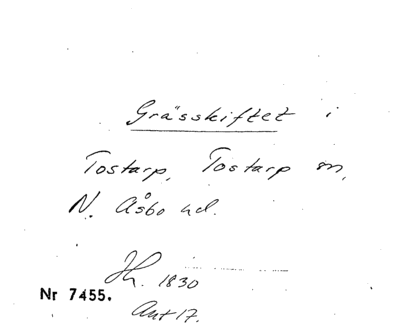 Grässkiftet i
Tostarp, Tostarp m,
N. Åsbo hd.
Jh. 1830
Nr 7455.
Ant 17.